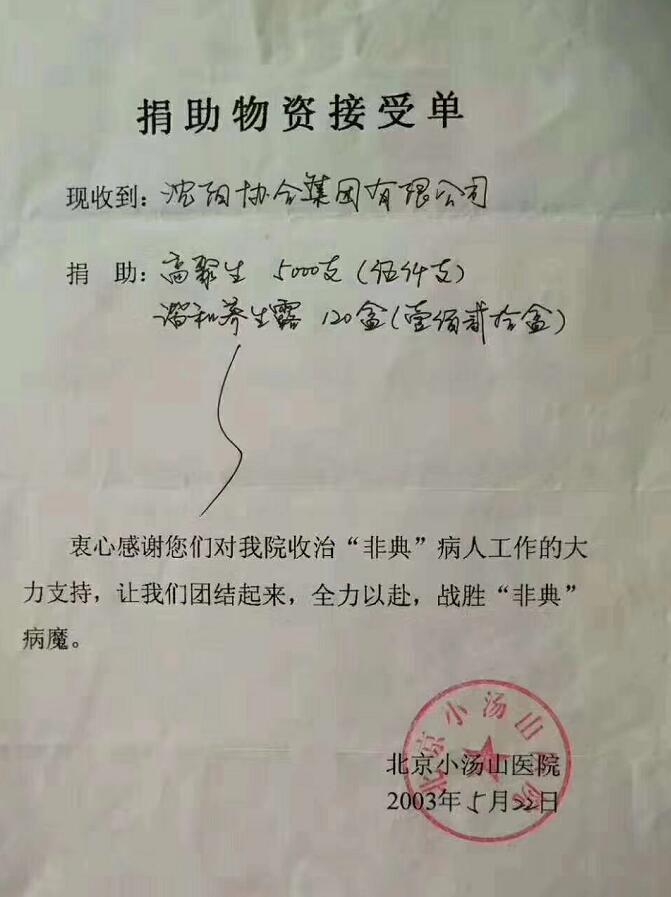 捐助物资接受单
现收到：沈阳协合集团有限公司
捐 助：高聚生 5000支（伍仟支）
谐和养生露 120盒（壹佰贰拾盒）
衷心感谢您们对我院收治“非典”病人工作的大
力支持，让我们团结起来，全力以赴，战胜“非典”
病魔。
北京小汤山医院
北京小汤山医院
2003年5月22日